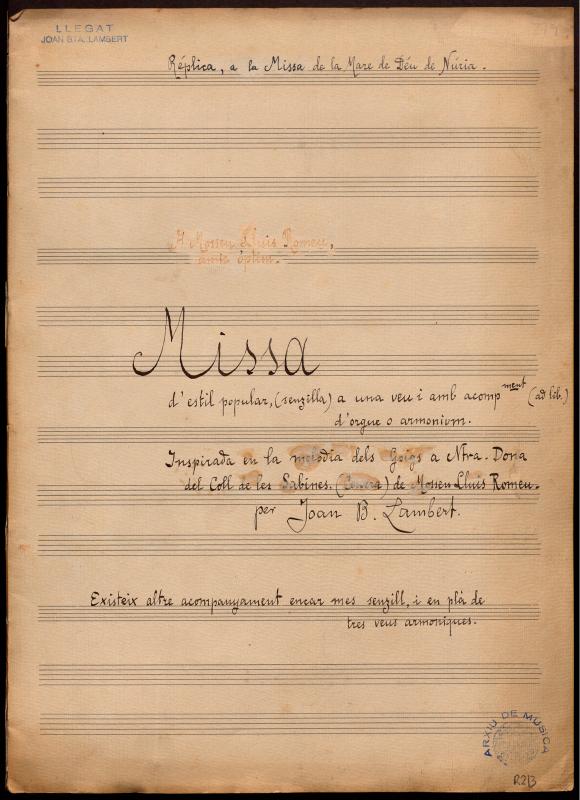 LLEGAT
JOAN BTA. LAMBERT
Réplica, a la Missa de la Mare de Déu de Núria.
A Mossen Lluis Romeu,
òptim.
Missa
d'estil popular, (senzilla) a una veu i amb acompment (ad lib.)
d'orgue o armonium.
Inspirada en la melodía dels Goigs a Ntra. Dona
del Coll de les Sabines. de Mossen Lluis Romeu.
per Joan B. Lambert.
Existeix altre acompanyament encar mes senzill, i en plà de
tres veus armoniques.
ARXIU DE MÚSICA
R.213